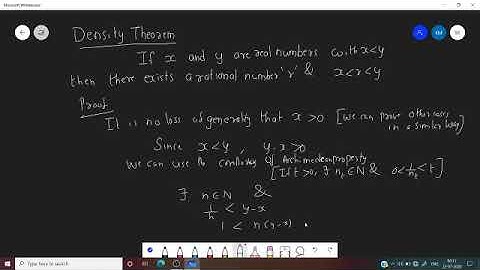 Microsoft Whiteboard
Density Theorem
If x and y are real numbers with x<y
then there exists a rational number 'r' & x<r<y
Proof
It is no loss of generality that x>0 [we can prove other cases
in a similar way]
Since x<y, y-x>0
we can use the corollary of Archimedean property
[If t>0, ∃ n_t ∈ N & 0<1/n_t<t]
∃ n∈N &
1/n < y-x
1 < n(y-x)
Type here to search
ENG